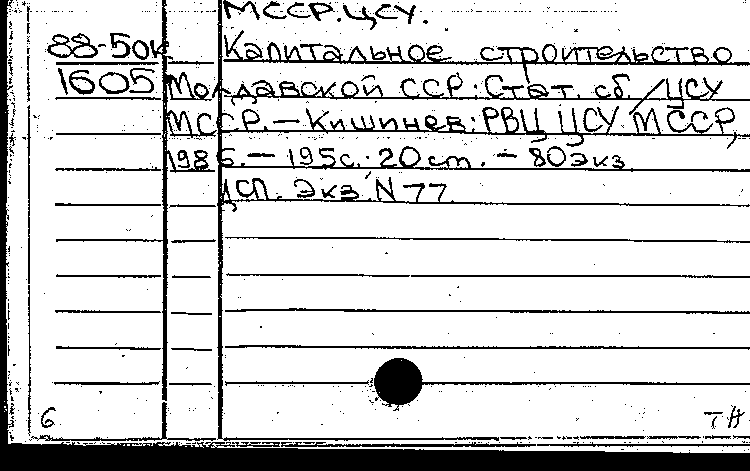 МССР. ЦСУ.
88-50к Капитальное строительство
1605 Молдавской ССР: Стат. сб. / ЦСУ
МССР. – Кишинев: РВЦ ЦСУ МССР,
1986. – 195с.; 20 см. – 80экз.
ДСП. Экз. N 77
6 ТН